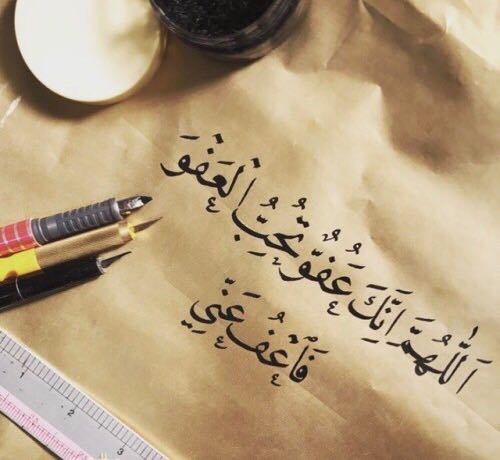 اَللّٰهُمَّ اِنَّكَ عَفُوٌّ تُحِبُّ الْعَفْوَ
فَاعْفُ عَنِّي
1 2 3